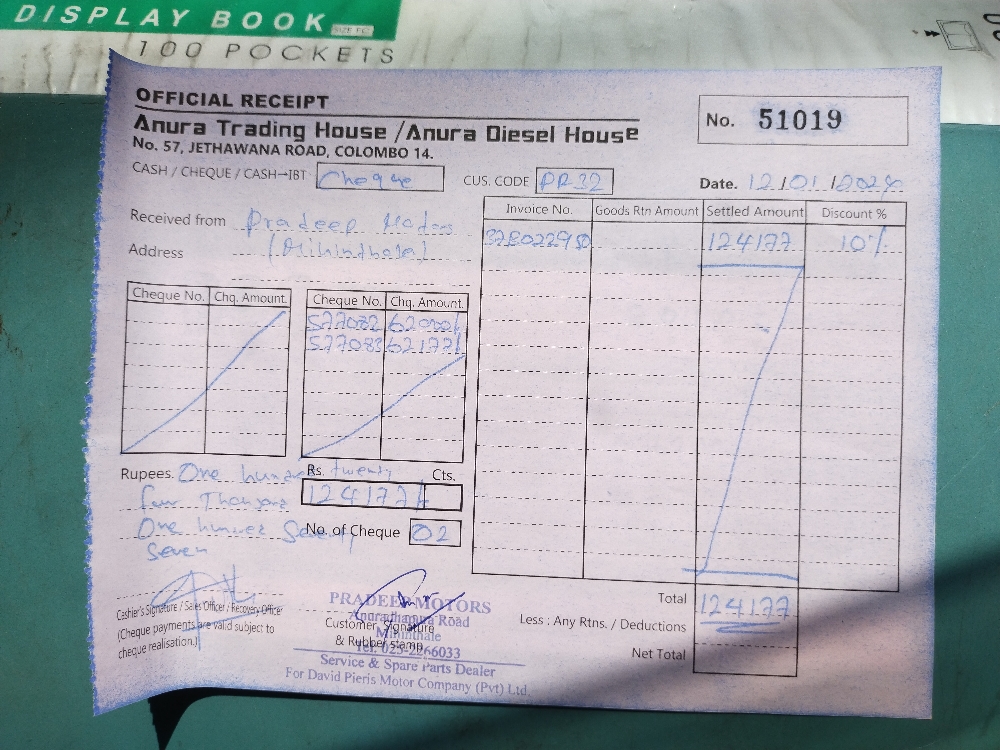 DISPLAY BOOK SIZE F/C
100 POCKETS
OFFICIAL RECEIPT
Anura Trading House /Anura Diesel House
No. 57, JETHAWANA ROAD, COLOMBO 14.
No. 51019
CASH / CHEQUE / CASH→IBT Cheque
CUS. CODE PR32
Date. 12/01/2024
Received from Pradeep Motors
Address (Mihinthale)
Invoice No. Goods Rtn Amount Settled Amount Discount %
124177 10%
Cheque No. Chq. Amount.
Cheque No. Chq. Amount.
577082 62000/
577083 62177/
Rupees. One hundred twenty
four Thousand
One hundred Seventy
Seven
Rs. Cts.
124177/
No. of Cheque 02
Cashier's Signature / Sales Officer / Recovery Officer
(Cheque payments are valid subject to
cheque realisation.)
PRADEEP MOTORS
Anuradhapura Road
Mihinthale
Tel: 025-2266033
Service & Spare Parts Dealer
For David Pieris Motor Company (Pvt) Ltd.
Customer Signature
& Rubber stamp
Total 124177
Less : Any Rtns. / Deductions
Net Total